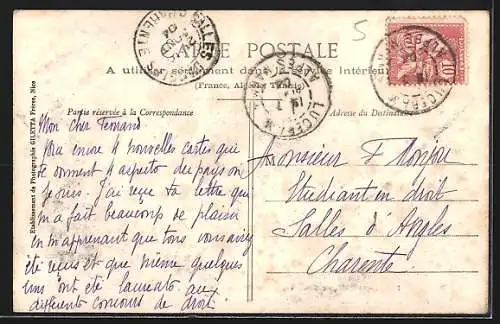 5
CARTE POSTALE
A utiliser seulement dans le Service Intérieur
(France, Algérie, Tunisie)
SALLES
CHARENTE
LUCERAM
LUCERAM
10
Partie réservée à la Correspondance
Adresse du Destinataire
Etablissement de Photographie GILETTA Frères, Nice
Mon cher Fernand
encore 4 nouvelles cartes qui
te donnent 4 aspects du pays où
je suis. J'ai reçu ta lettre qui
m'a fait beaucoup de plaisir
en m'apprenant que tous vous aviez
été reçus et que même quelques
uns ont été lauréats aux
différents concours de droit.
Monsieur F
Etudiant en droit
Salles d'Angles
Charente